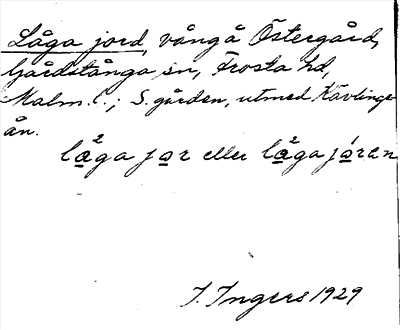 Låga jord, vångå Östergård,
Gårdstånga sn, Frosta hd,
Malm. l.; S. gården, utmed Kävlinge-
ån.
lå²ga jor eller lå²ga jóren
I. Ingers 1929